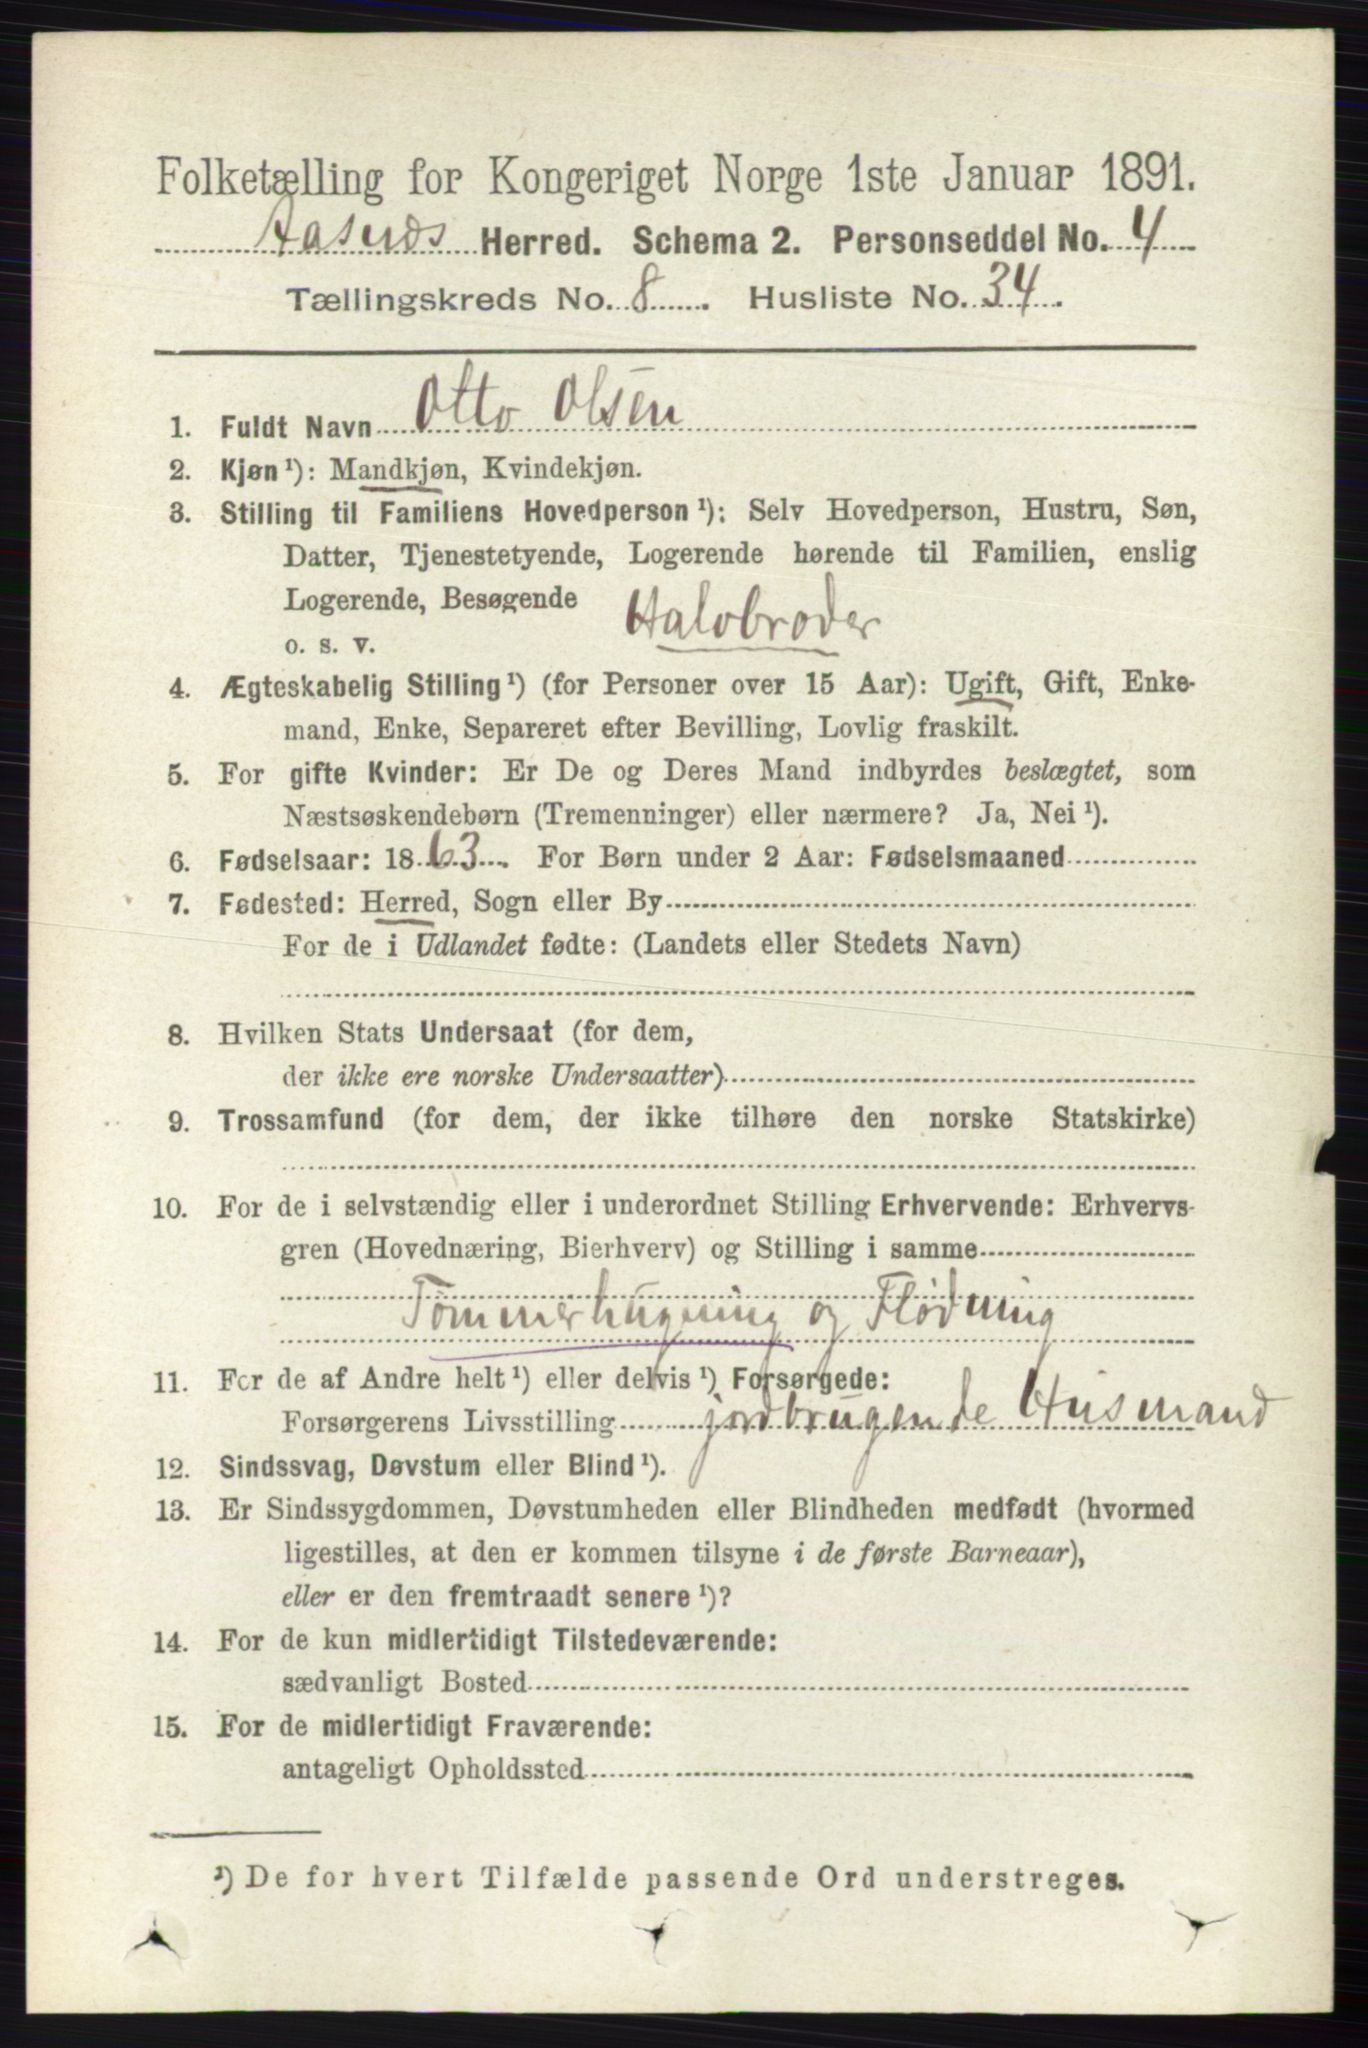 Folketælling for Kongeriget Norge 1ste Januar 1891.
Aasnes Herred. Schema 2. Personseddel No. 4
Tællingskreds No. 8. Husliste No. 34.
1. Fuldt Navn Otto Olsen
2. Kjøn¹): Mandkjøn, Kvindekjøn.
3. Stilling til Familiens Hovedperson¹): Selv Hovedperson, Hustru, Søn,
Datter, Tjenestetyende, Logerende hørende til Familien, enslig
Logerende, Besøgende Halvbroder
o. s. v.
4. Ægteskabelig Stilling¹) (for Personer over 15 Aar): Ugift, Gift, Enke-
mand, Enke, Separeret efter Bevilling, Lovlig fraskilt.
5. For gifte Kvinder: Er De og Deres Mand indbyrdes beslægtet, som
Næstsøskendebørn (Tremenninger) eller nærmere? Ja, Nei¹).
6. Fødselsaar: 1863. For Børn under 2 Aar: Fødselsmaaned
7. Fødested: Herred, Sogn eller By
For de i Udlandet fødte: (Landets eller Stedets Navn)
8. Hvilken Stats Undersaat (for dem,
der ikke ere norske Undersaatter)
9. Trossamfund (for dem, der ikke tilhøre den norske Statskirke)
10. For de i selvstændig eller i underordnet Stilling Erhvervende: Erhvervs-
gren (Hovednæring, Bierhverv) og Stilling i samme
Tømmerhugning og Flødning
11. For de af Andre helt¹) eller delvis¹) Forsørgede:
Forsørgerens Livsstilling jordbrugende Husmand
12. Sindssvag, Døvstum eller Blind¹).
13. Er Sindssygdommen, Døvstumheden eller Blindheden medfødt (hvormed
ligestilles, at den er kommen tilsyne i de første Barneaar),
eller er den fremtraadt senere¹)?
14. For de kun midlertidigt Tilstedeværende:
sædvanligt Bosted
15. For de midlertidigt Fraværende:
antageligt Opholdssted
¹) De for hvert Tilfælde passende Ord understreges.